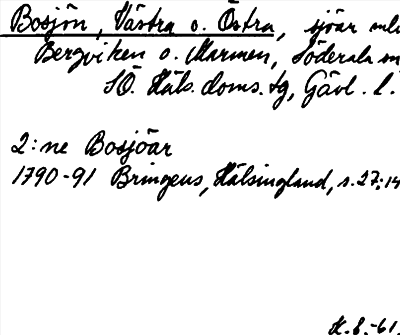 Bosjön, Västra o. Östra, sjöar mli
Bergviken o. Marmen, Söderala sn
SÖ. Häls. doms. tg, Gävl. l.
2:ne Bosjöar
1790-91 Bringeus, Hälsingland, s. 27; 14
K.E.-61.